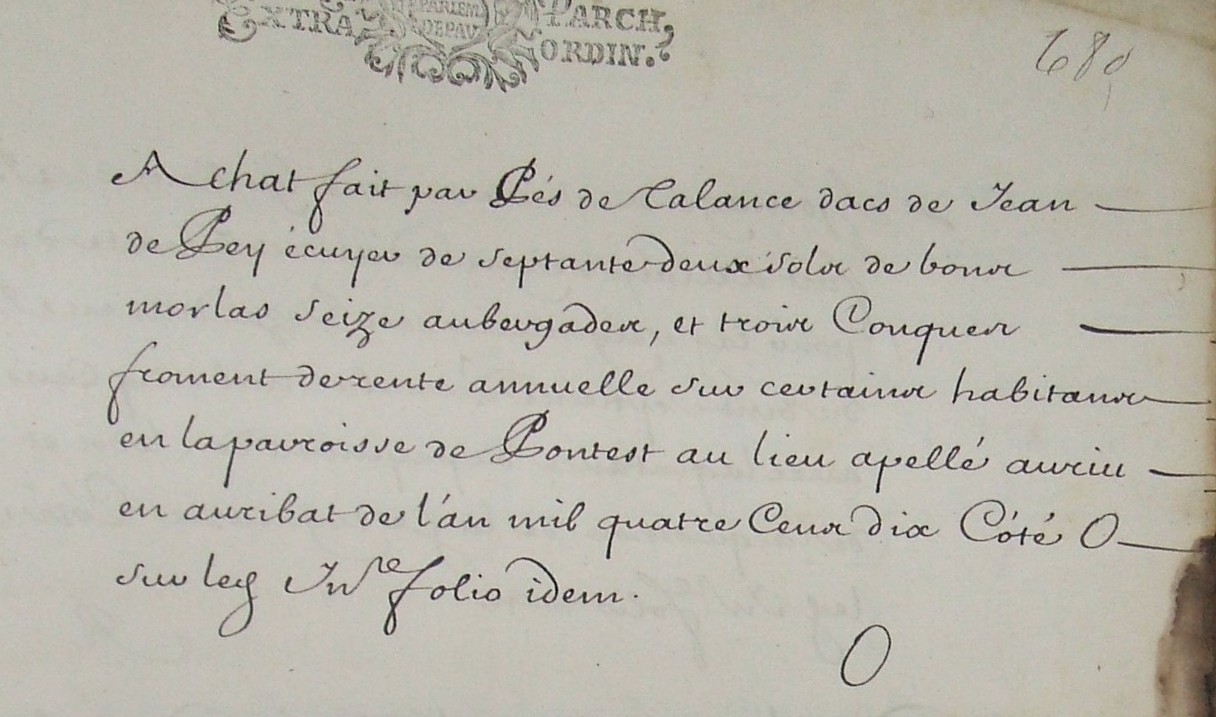 EXTRA PARCH.
DE PAU ORDIN.
680
Achat fait par Pés de Calance dacs de Jean
de Pey écuyer de septante deux sols de bons
morlas seize aubergades, et trois Conques
froment de rente annuelle sur certains habitans
en la parroisse de Pontest au lieu apellé auriu
en auribat de l'an mil quatre Cens dix Côté O
sur leg Inre folio idem.
O